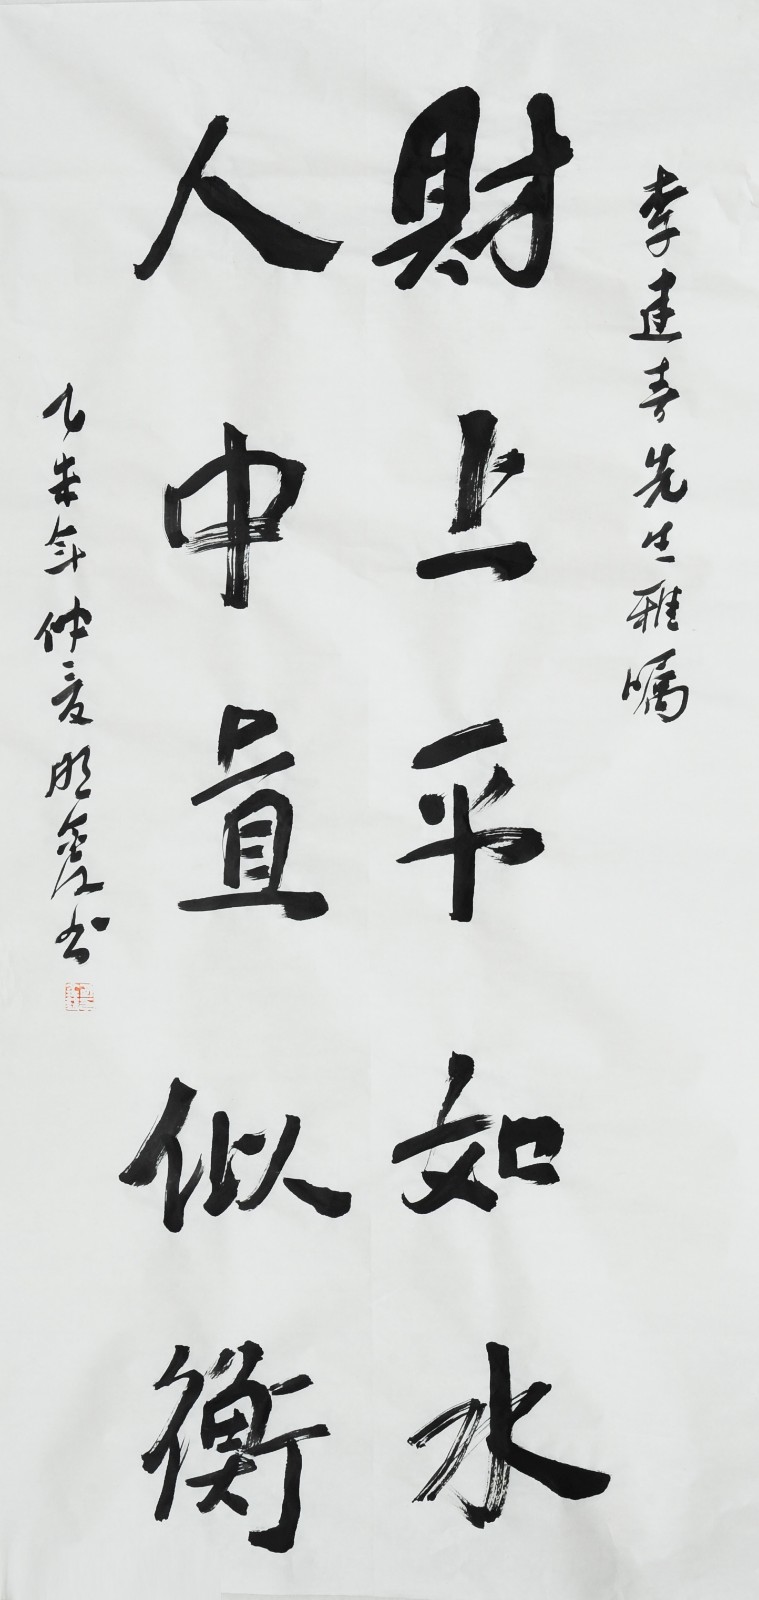 李建春先生雅嘱
財上平如水
人中直似衡
乙未年仲夏明俊书